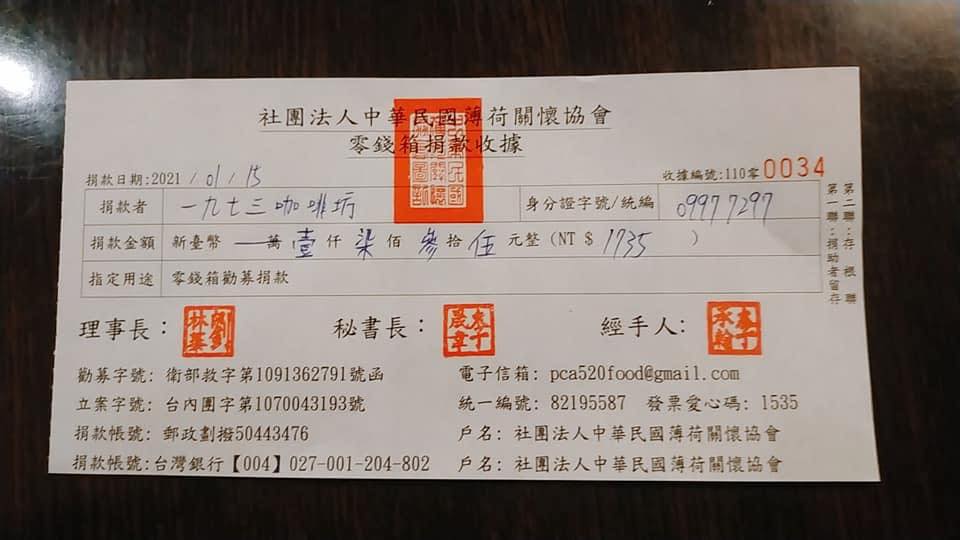 社團法人中華民國薄荷關懷協會
零錢箱捐款收據
捐款日期:2021 / 01 / 15
收據編號:110零0034
捐款者 一九七三咖啡坊 身分證字號/統編 09977297
捐款金額 新臺幣 一萬 壹仟 柒佰 參拾 伍元整 (NT $ 1735 )
指定用途 零錢箱勸募捐款
第二聯:存根聯
第一聯:捐助者留存
理事長: 秘書長: 經手人:
勸募字號: 衛部救字第1091362791號函 電子信箱: pca520food@gmail.com
立案字號: 台內團字第1070043193號 統一編號: 82195587 發票愛心碼: 1535
捐款帳號: 郵政劃撥50443476 戶名: 社團法人中華民國薄荷關懷協會
捐款帳號:台灣銀行【004】027-001-204-802 戶名: 社團法人中華民國薄荷關懷協會